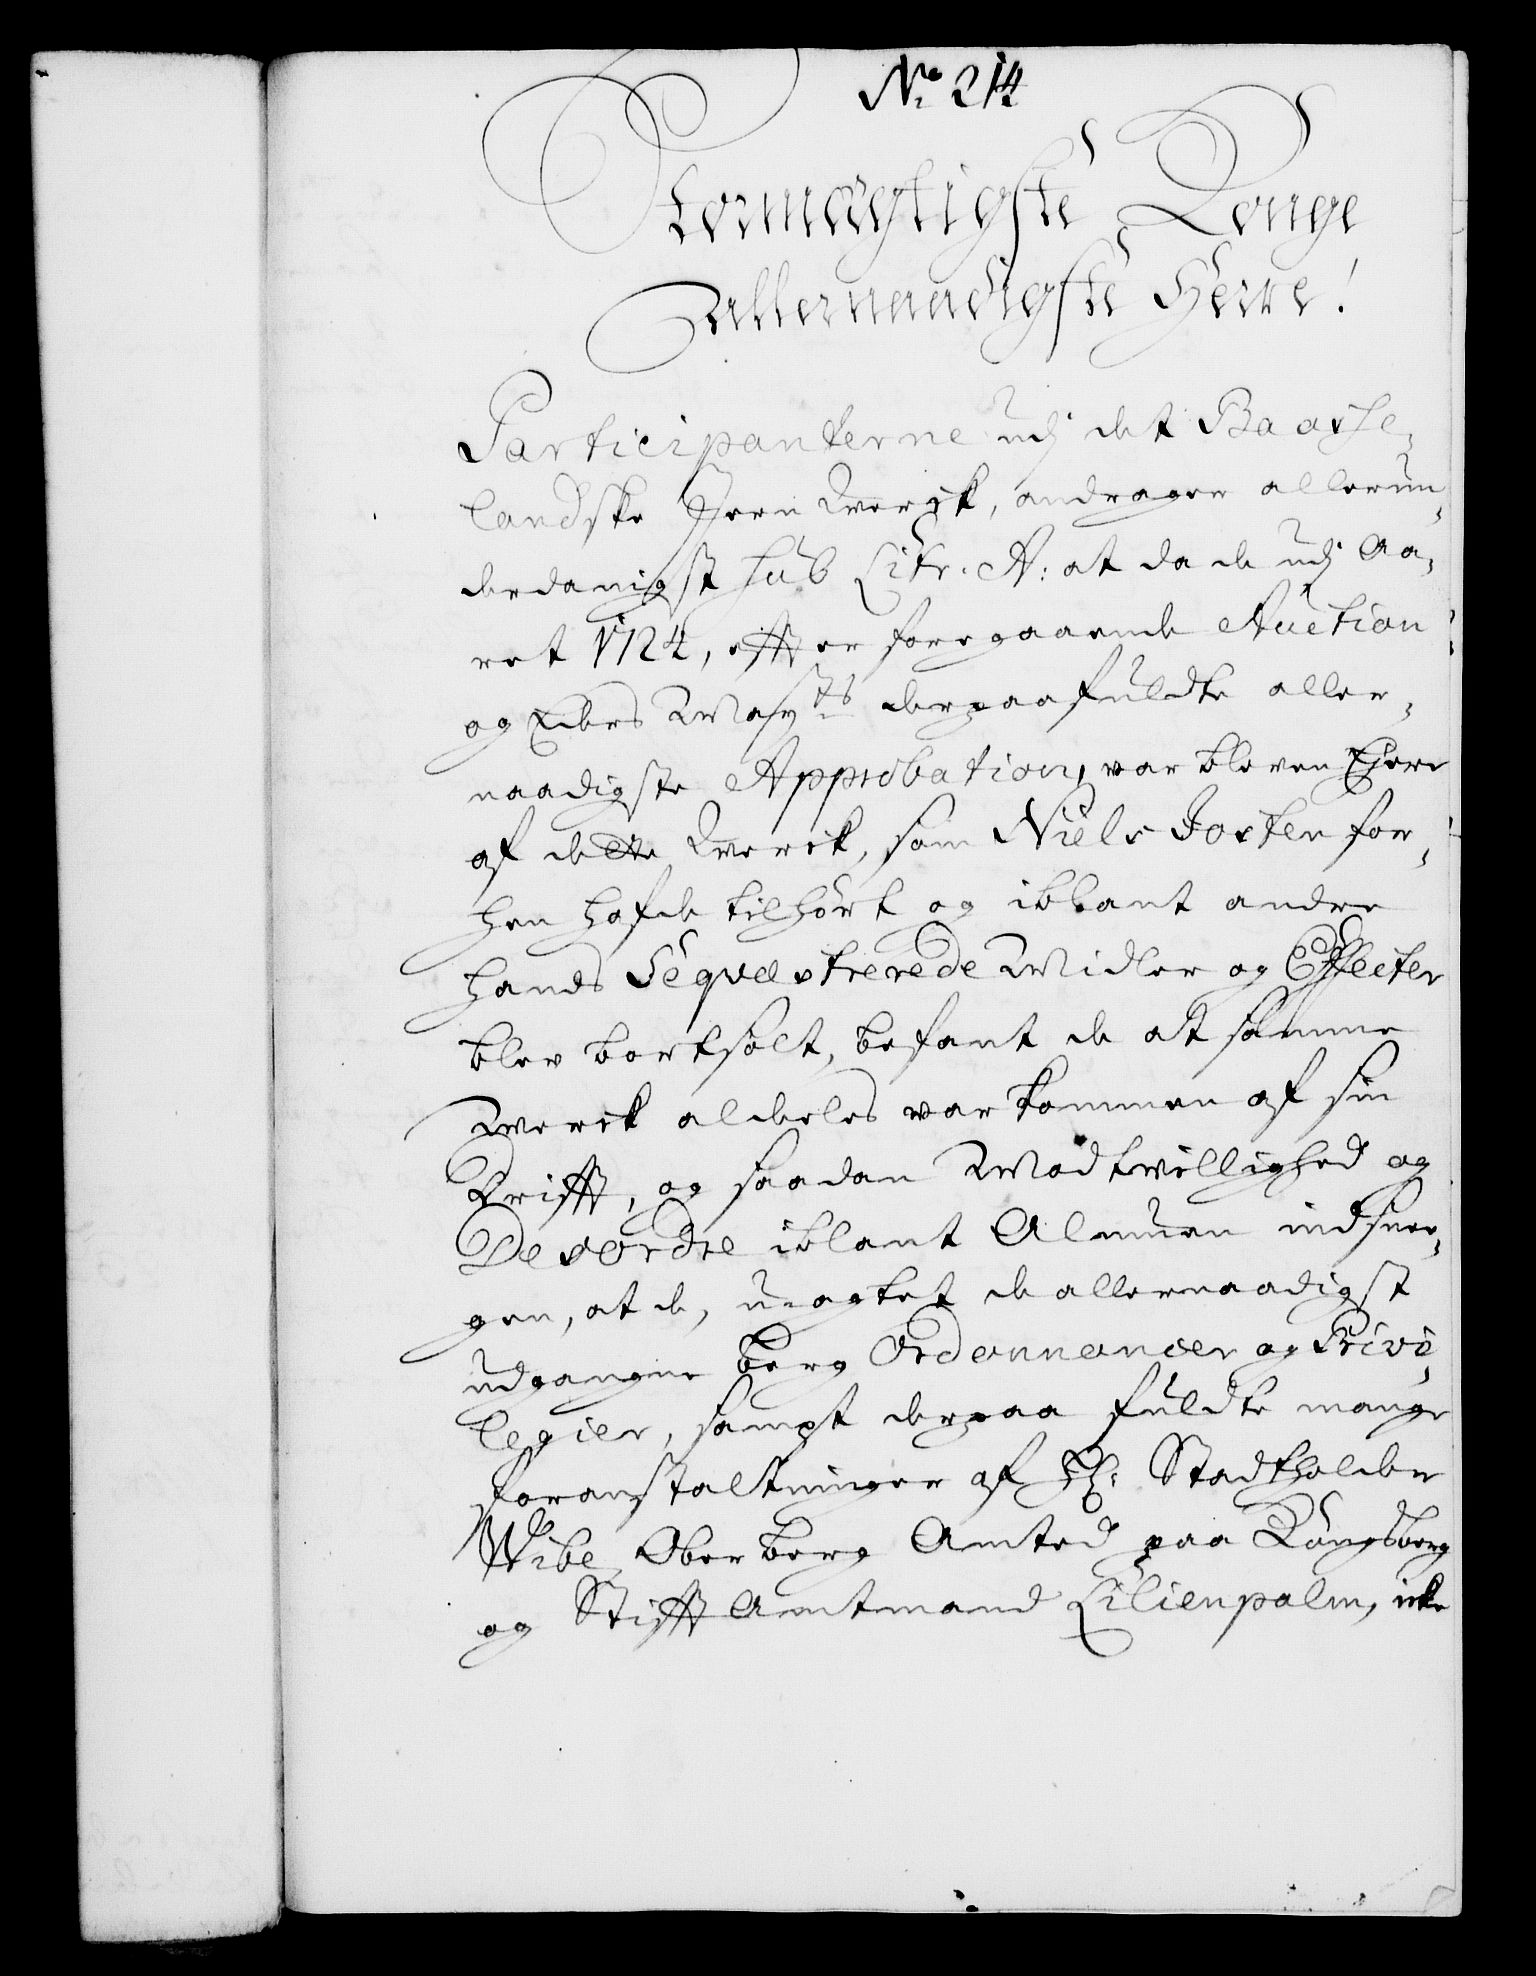 No 214
Stormægtigste Konge
Allernaadigste Herre!
Participanterne udj det Baasse-
landske Jern Werck, andrager allerun-
derdanigst sub Litr. A: at da de udj Aa-
ret 1724, effter foregaaende Auction
og Eders Maysts derpaafuldte aller-
naadigste Approbation, var bleven Ejere
af dette Werck, som Niels Jorten for-
hen hafde tilhørt og iblant andre
hands Seqvestrerede Midler og Effecter
blev bortsolt, befant de at samme
Werck aldeles var kommen af sin
Drifft, og saadan Modtwillighed og
Desordre iblant Almuen indsnee-
gen, at de, uagtet de allernaadigst
udgangne berg Ordonnancer og Privi-
legier, sampt derpaa fuldte mange
foranstaltninger af H: Stadtholder
Wibe, Ober berg Amted paa Kongsberg
og Stifft Amtmand Lilienpalm, icke